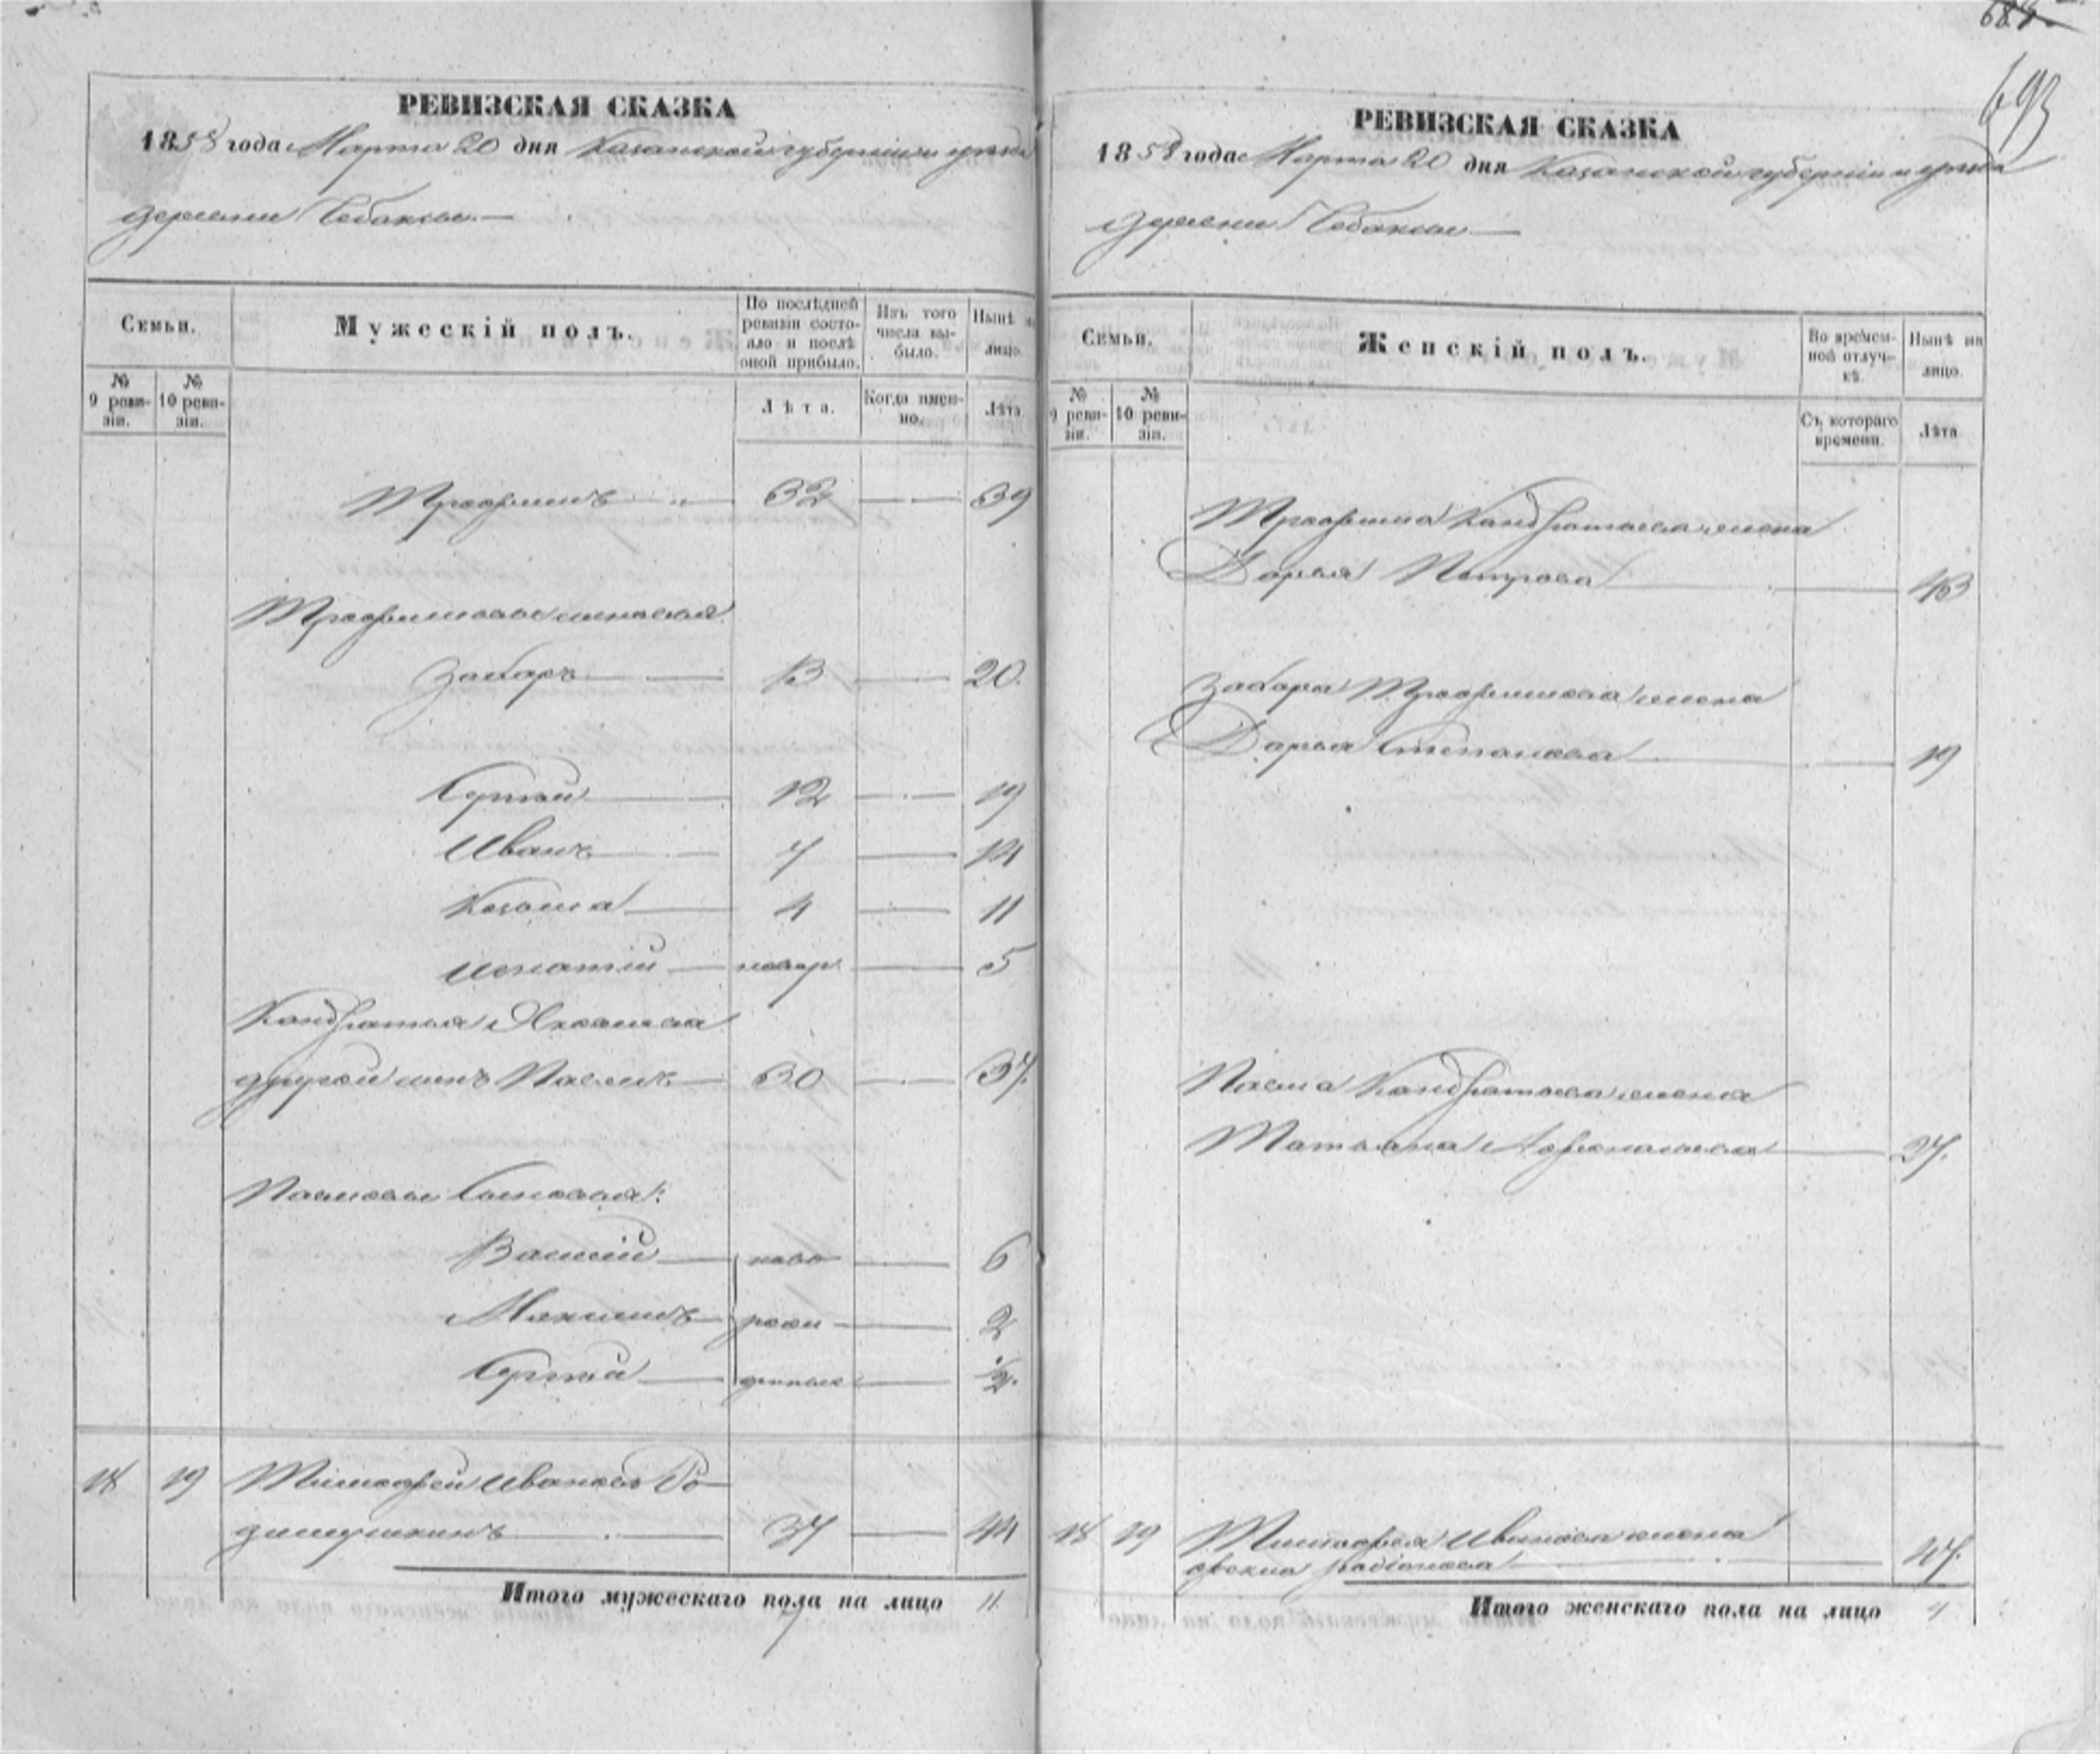 684
693
РЕВИЗСКАЯ СКАЗКА
1858 года Марта 20 дня Казанской губерніи и уезда
деревни Чебаксы.—
Семьи.
Мужескій полъ.
По послѣдней ревизіи состояло и послѣ оной прибыло.
Изъ того числа выбыло.
Нынѣ на лицо.
№ 9 ревизіи.
№ 10 ревизіи.
Лѣта.
Когда именно.
Лѣта
Трофимъ 32 — 39
Трофимовы сыновья
Захаръ 13 — 20
Сергѣй 12 — 19
Иванъ 7 — 14
Козьма 4 — 11
Игнатій новор. — 5
Кондратья Яковлева
другой сынъ Павелъ 30 — 37.
Павловы Сыновья:
Василій ново — 6
Максимъ рож — 2
Сергѣй денные — 1/2.
18 19 Тимофей Ивановъ Ро-
димушкинъ 37 — 44
Итого мужескаго пола на лицо 11
РЕВИЗСКАЯ СКАЗКА
1858 года Марта 20 дня Казанской губерніи и уезда
деревни Чебаксы —
Семьи.
Женскій полъ.
Во временной отлучкѣ.
Нынѣ на лицо.
№ 9 ревизіи.
№ 10 ревизіи.
Съ котораго времени.
Лѣта
Трофима Кондратьева жена
Дарья Петрова — 43
Захара Трофимова жена
Дарья Степанова — 19
Павла Кондратьева жена
Татьяна — 37.
18 19 Тимофея Иванова жена
Родіонова — 47.
Итого женскаго пола на лицо 4